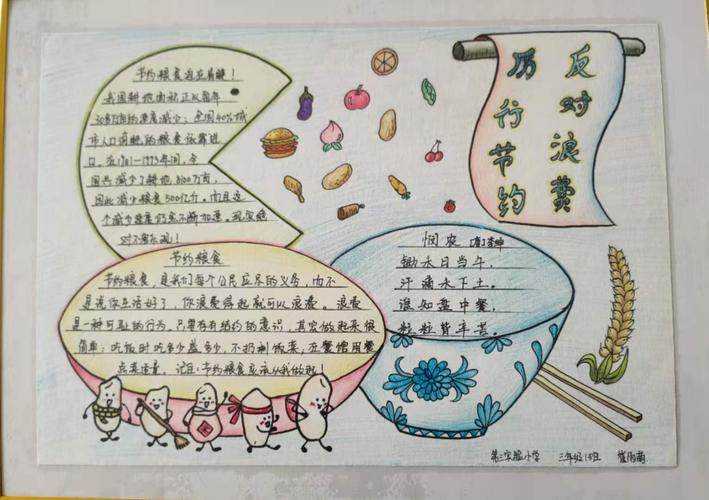 节约粮食迫在眉睫！
我国耕地面积正以每年
30多万亩的速度减少；全国40%城
市人口消耗的粮食依靠进
口。在1981—1995年间，全
国共减少了耕地8100万亩，
因此减少粮食500亿斤。而且这
个减少速度仍在不断加速。现实绝
对不容乐观！
反对浪费
厉行节约
节约粮食
节约粮食，是我们每个公民应尽的义务，而不
是说你生活好了，你浪费得起就可以浪费。浪费
是一种可耻的行为，只要存有节约的意识，其实做起来很
简单：吃饭时吃多少盛多少，不扔剩饭菜，在餐馆用餐
点菜适量，记住：节约粮食应该从我做起！
悯农 唐李绅
锄水日当午，
汗滴水下土。
谁知盘中餐，
粒粒皆辛苦。
第二实验小学 三年级1班